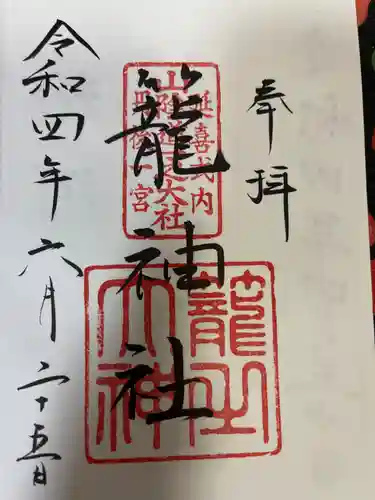 奉拝
延喜式内
山陰道之大社
丹後一宮
籠神社
籠之
大神
令和四年六月二十五日